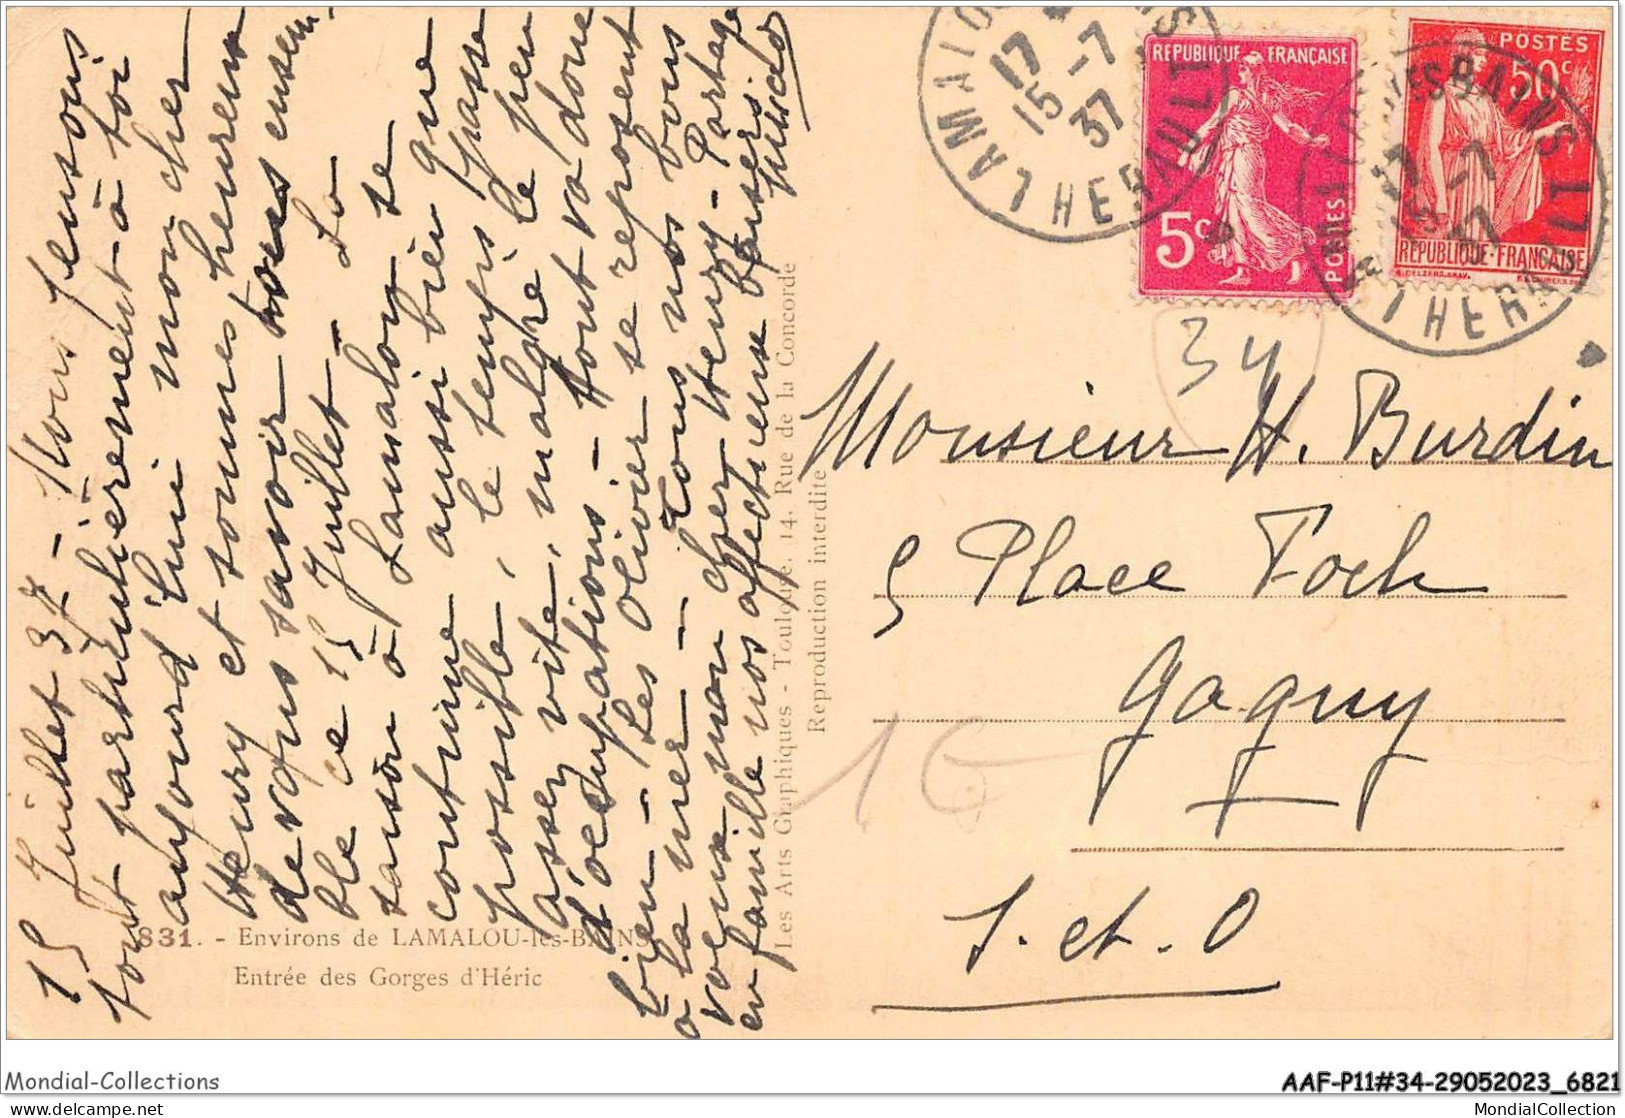 15 Juillet 37 - Nous pensons
tout particulièrement à toi
aujourd'hui mon cher
Henry et sommes heureux
de vous savoir tous ensem-
ble ce 15 Juillet - La
saison à Lamalou se
continue aussi bien que
possible, le temps passe
assez vite, malgré le peu
d'occupations - tout va donc
bien - Les Olivier se reposent
à la mer - Tous nos bons
voeux mon cher Henry - Partage
en famille nos affectueux baisers.
831. - Environs de LAMALOU-les-BAINS
Entrée des Gorges d'Héric
Les Arts Graphiques - Toulouse. 14. Rue de la Concorde
Reproduction interdite
LAMALOU
17
15 -7
37
HERAULT
REPUBLIQUE FRANÇAISE
5c
POSTES
POSTES
50c
REPUBLIQUE-FRANÇAISE
LES BAINS
HERAULT
34
Monsieur H. Burdin
5 Place Foch
Gagny
S. et. O
1€
Mondial-Collections
AAF-P11#34-29052023_6821
MondialCollection.com
MondialCollection